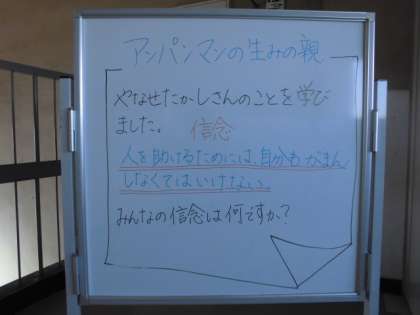 アンパンマンの生みの親
やなせたかしさんのことを学び
ました。 信念
人を助けるためには、自分もがまん
しなくてはいけない。
みんなの信念は何ですか?